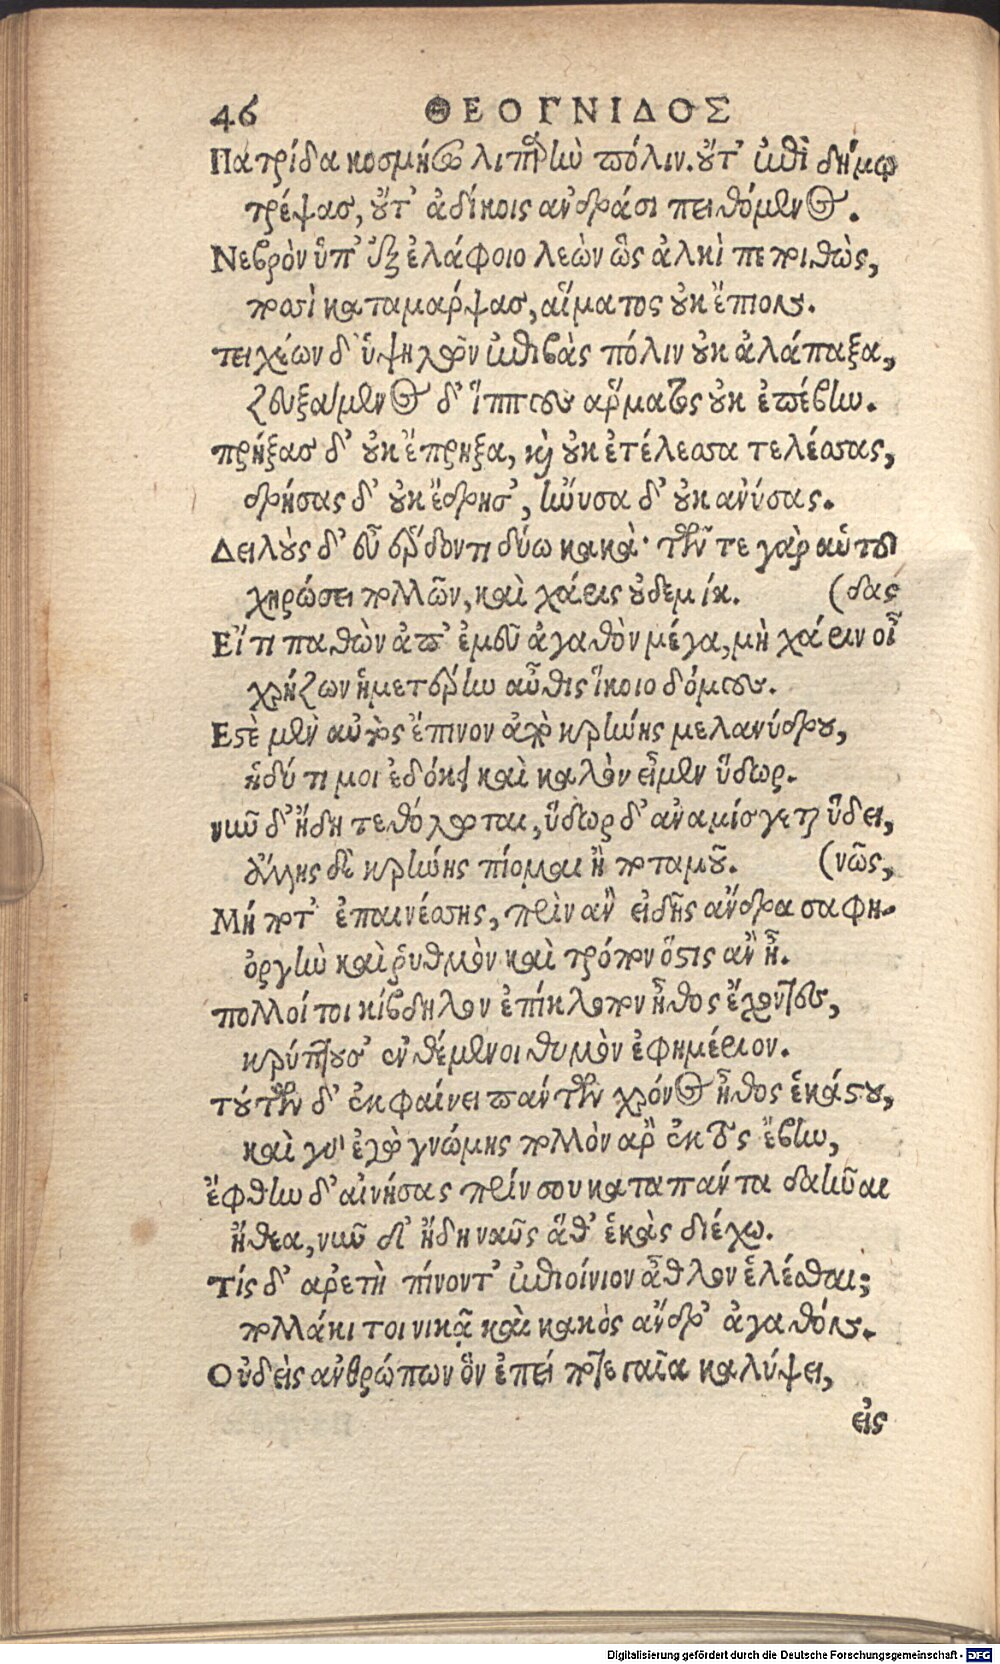 46 ΘΕΟΓΝΙΔΟΣ
Πατρίδα κοσμήσω λιπαρὴν πόλιν. οὔτ' ἐπὶ δήμῳ
τρέψας, οὔτ' ἀδίκοις ἀνδράσι πειθόμενος.
Νεβρὸν ὑπ' ἐξ ἐλάφοιο λεὼν ὣς ἀλκὶ πεποιθὼς,
ποσὶ καταμάρψας, αἵματος οὐκ ἔπιον.
τειχέων δ' ὑψηλῶν ἐπιβὰς πόλιν οὐκ ἀλάπαξα,
ζευξάμενος δ' ἵππους ἅρματος οὐκ ἐπέβην.
πρήξας δ' οὐκ ἔπρηξα, καὶ οὐκ ἐτέλεσσα τελέσσας,
δρήσας δ' οὐκ ἔδρησ', ἤνυσα δ' οὐκ ἀνύσας.
Δειλοὺς δ' εὖ ἕρδοντι δύω κακά· τῶν τε γὰρ αὑτοῦ
χηρώσει πολλῶν, καὶ χάρις οὐδεμία. (δας
Εἴ τι παθὼν ἀπ' ἐμοῦ ἀγαθὸν μέγα, μὴ χάριν οἶ
χρήζων ἡμετέρην αὖθις ἵκοιο δόμους.
Εστὲ μὲν αὐτὸς ἔπινον ἀπὸ κρήνης μελανύδρου,
ἡδύ τι μοι ἐδόκει καὶ καλὸν εἶμεν ὕδωρ.
νῦν δ' ἤδη τεθόλωται, ὕδωρ δ' ἀναμίσγεται ὕδει,
ἄλλης δὲ κρήνης πίομαι ἢ ποταμοῦ. (νῶς,
Μή ποτ' ἐπαινέσῃς, πρὶν ἂν εἰδῇς ἄνδρα σαφη-
ὀργὴν καὶ ῥυθμὸν καὶ τρόπον ὅστις ἂν ἦ.
πολλοί τοι κίβδηλον ἐπίκλοπον ἦθος ἔχοντες,
κρύπτουσ' ἐνθέμενοι θυμὸν ἐφημέριον.
τούτων δ' ἐκφαίνει πάντων χρόνος ἦθος ἑκάστου,
καὶ γὰρ ἐγὼ γνώμης πολλὸν ἄρ' ἐκτὸς ἔβην,
ἔφθην δ' αἰνήσας πρίν σου κατὰ πάντα δαῆναι
ἤθεα, νῦν δ' ἤδη ναῦς ἅθ' ἑκὰς διέχω.
Τίς δ' ἀρετὴ πίνοντ' ἐπιοίνιον ἆθλον ἑλέσθαι;
πολλάκι τοι νικᾷ καὶ κακὸς ἄνδρ' ἀγαθόν.
Οὐδεὶς ἀνθρώπων ὃν ἐπεί ποτε γαῖα καλύψει,
εἰς
Digitalisierung gefördert durch die Deutsche Forschungsgemeinschaft - DFG